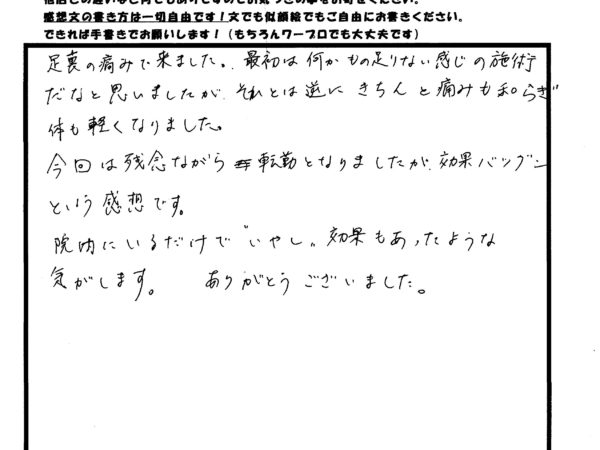 感想文の書き方は一切自由です！文でも似顔絵でもご自由にお書きください。
できれば手書きでお願いします！（もちろんワープロでも大丈夫です）
足裏の痛みで来ました。最初は何かもの足りない感じの施術
だなと思いましたが、それとは逆にきちんと痛みも和らぎ
体も軽くなりました。
今回は残念ながら転勤となりましたが、効果バツグン
という感想です。
院内にいるだけで"いやし"効果もあったような
気がします。 ありがとうございました。